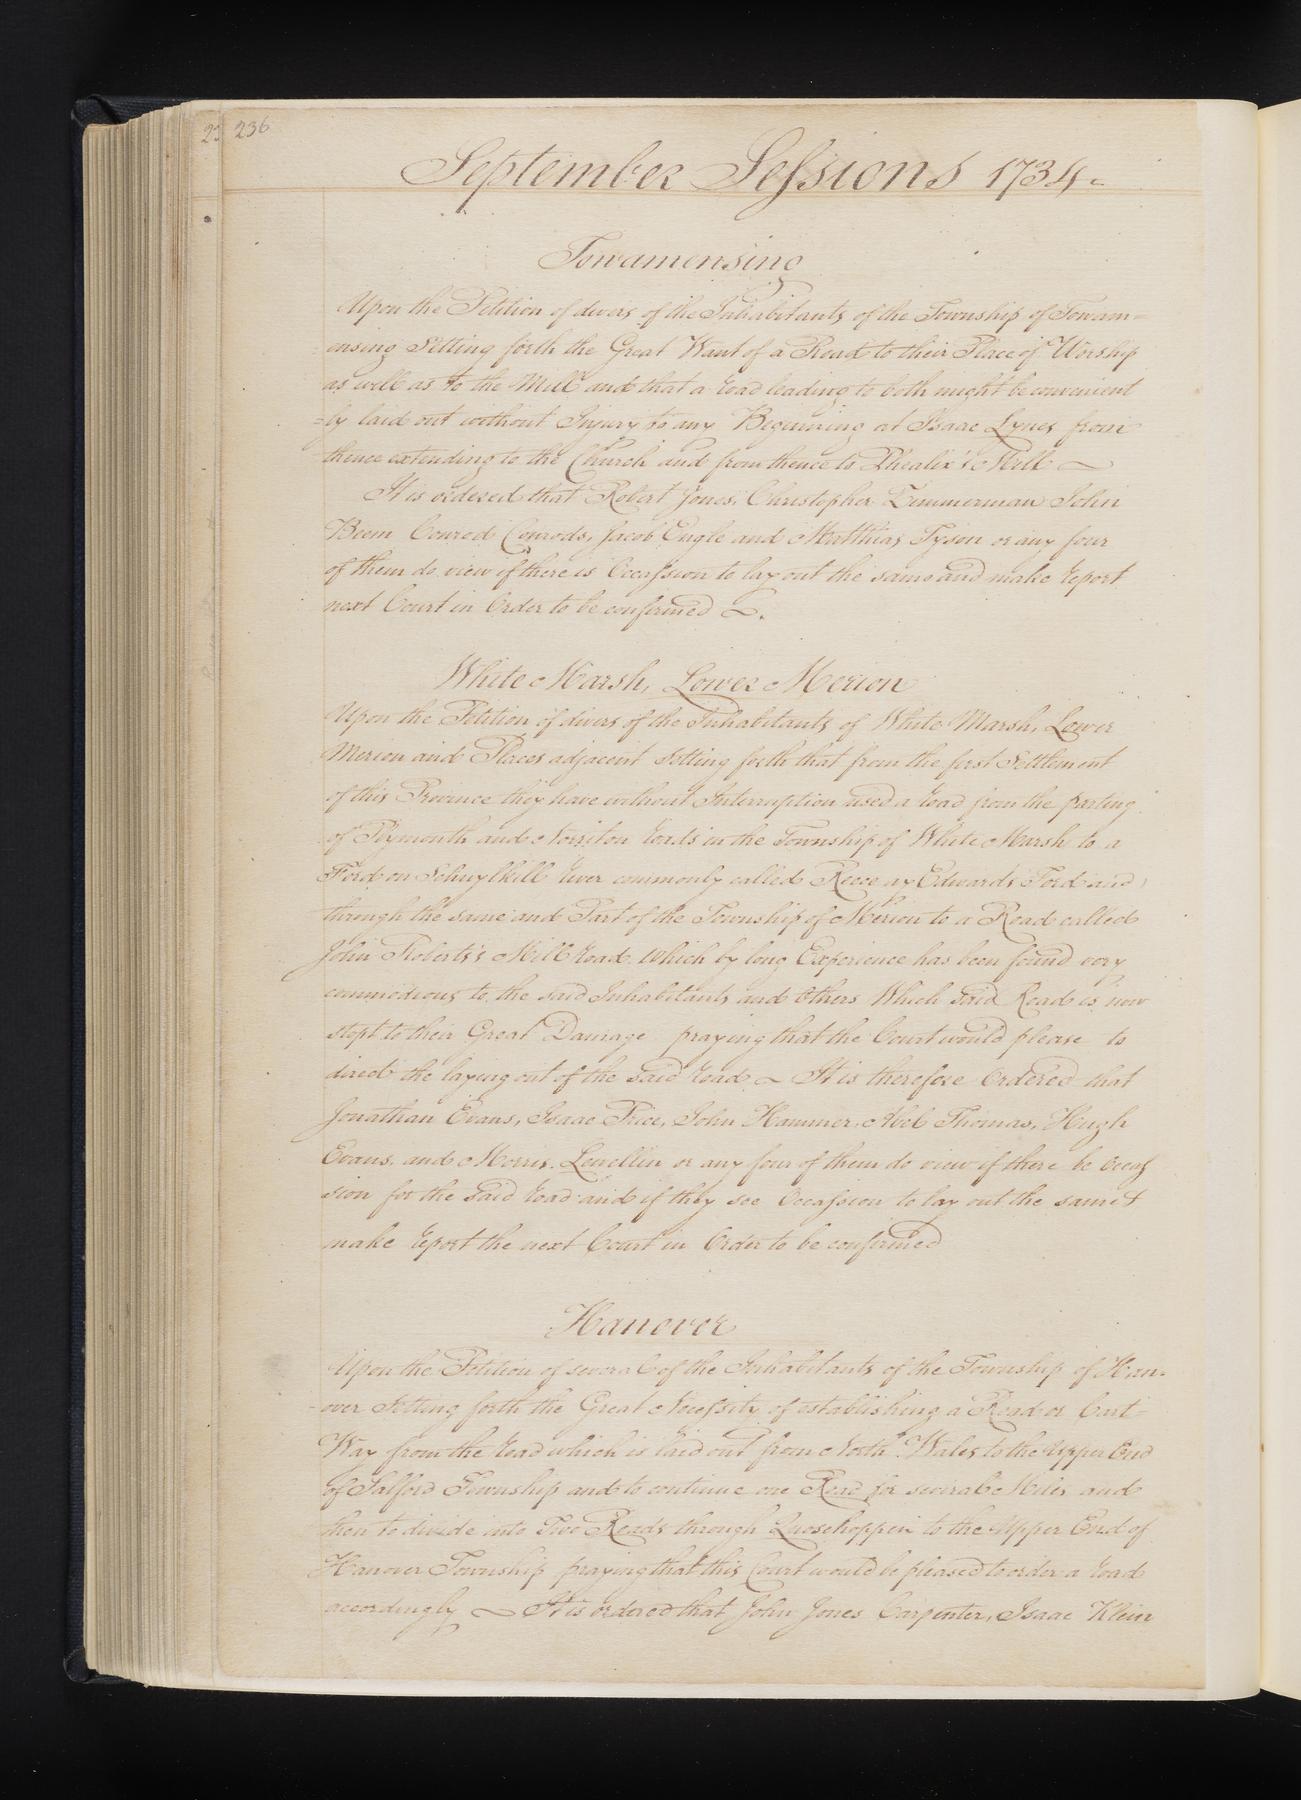 236
September Sessions 1734
Towamensing
Upon the Petition of divers of the Inhabitants of the Township of Towam=
=ensing Setting forth the Great Want of a Road to their Place of Worship
as well as to the Mill and that a road leading to both might be convenient
=ly laid out without Injury to any Beginning at Isaac Lynes from
thence extending to the Church and from thence to Phealix's Mill ~
It is ordered that Robert Jones, Christopher Zimmerman John
Beem Conrod Conrods, Jacob Engle and Matthias Tyson or any four
of them do view if there is Occassion to lay out the same and make report
next Court in Order to be confirmed ~.
White Marsh, Lower Merion
Upon the Petition of divers of the Inhabitants of White Marsh, Lower
Merion and Places adjacent Setting forth that from the first Settlement
of this Province they have without Interruption used a road from the parting
of Plymouth and Norriton roads in the Township of White Marsh to a
Ford on Schuylkill river commonly called Reece ap Edwards Ford and
through the same and Part of the Township of Merion to a Road called
John Roberts's Mill road. Which by long Experience has been found very
commodious to the said Inhabitants and Others Which said Road is now
stopt to their Great Damage praying that the Court would please to
direct the laying out of the said road ~ It is therefore Ordered that
Jonathan Evans, Isaac Price, John Hammer, Abel Thomas, Hugh
Evans, and Morris Lewellin or any four of them do view if there be Occas
sion for the said road and if they see Occassion to lay out the same &
make report the next Court in Order to be confirmed
Hanover
Upon the Petition of several of the Inhabitants of the Township of Han=
=over Setting forth the Great Necessity of establishing a Road or Cart=
Way from the road which is laid out from North Wales to the Upper End
of Salford Township and to continue one Road for several Miles and
then to divide into Two Roads through Quosehoppin to the Upper End of
Hanover Township praying that this Court would be pleased to order a road
accordingly ~ It is ordered that John Jones Carpenter, Isaac Klein